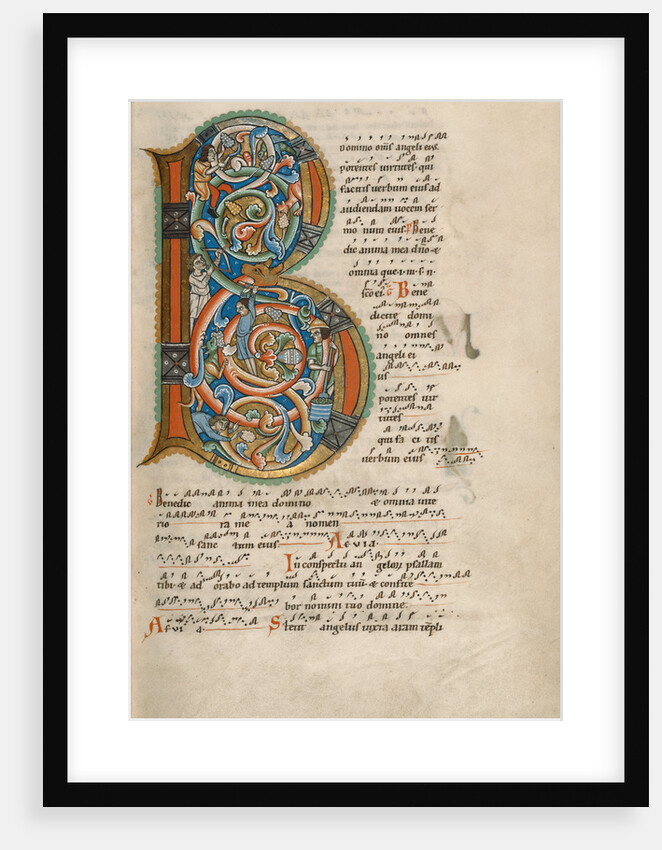 B
domino om̄s angeli eius.
potentes uirtutes qui
facitis uerbum eius ad
audiendam uocem ser
mo num eius. Bene
dic anima mea dn̄o &
omnia que i. m. s. n.
sc̄o ei. Bene
dicite domi
no omnes
angeli ei
us
potentes uir
tutes
qui fa ci tis
uerbum eius
Benedic anima mea domino & omnia inte
rio ra me a nomen
sanc tum eius Aeuia.
In conspectu an gelor psallam
tibi & ad orabo ad templum sanctum tuū & confite
bor nomini tuo domine.
Aeuia Stetit angelus iuxta aram tēpli